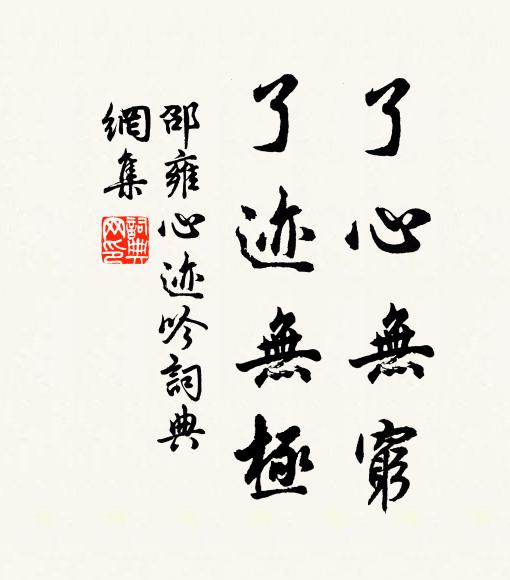 了心無窮
了迹無極
邵雍心迹吟詞典
網集
詞典网印